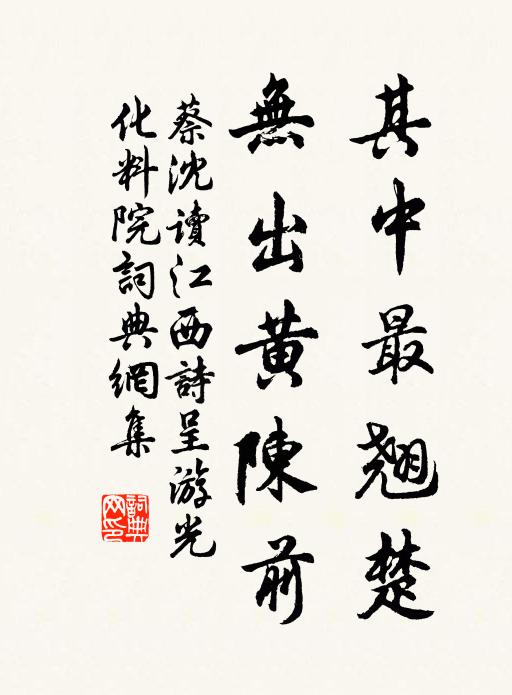 其中最翹楚
無出黃陳前
蔡沈讀江西詩呈游光
化料院詞典網集
詞典网印